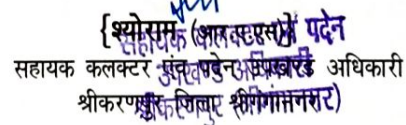 {श्योराम (आर ए एस)} पदेन
सहायक कलक्टर एवं पदेन उपखण्ड अधिकारी
श्रीकरणपुर जिला श्रीगंगानगर)